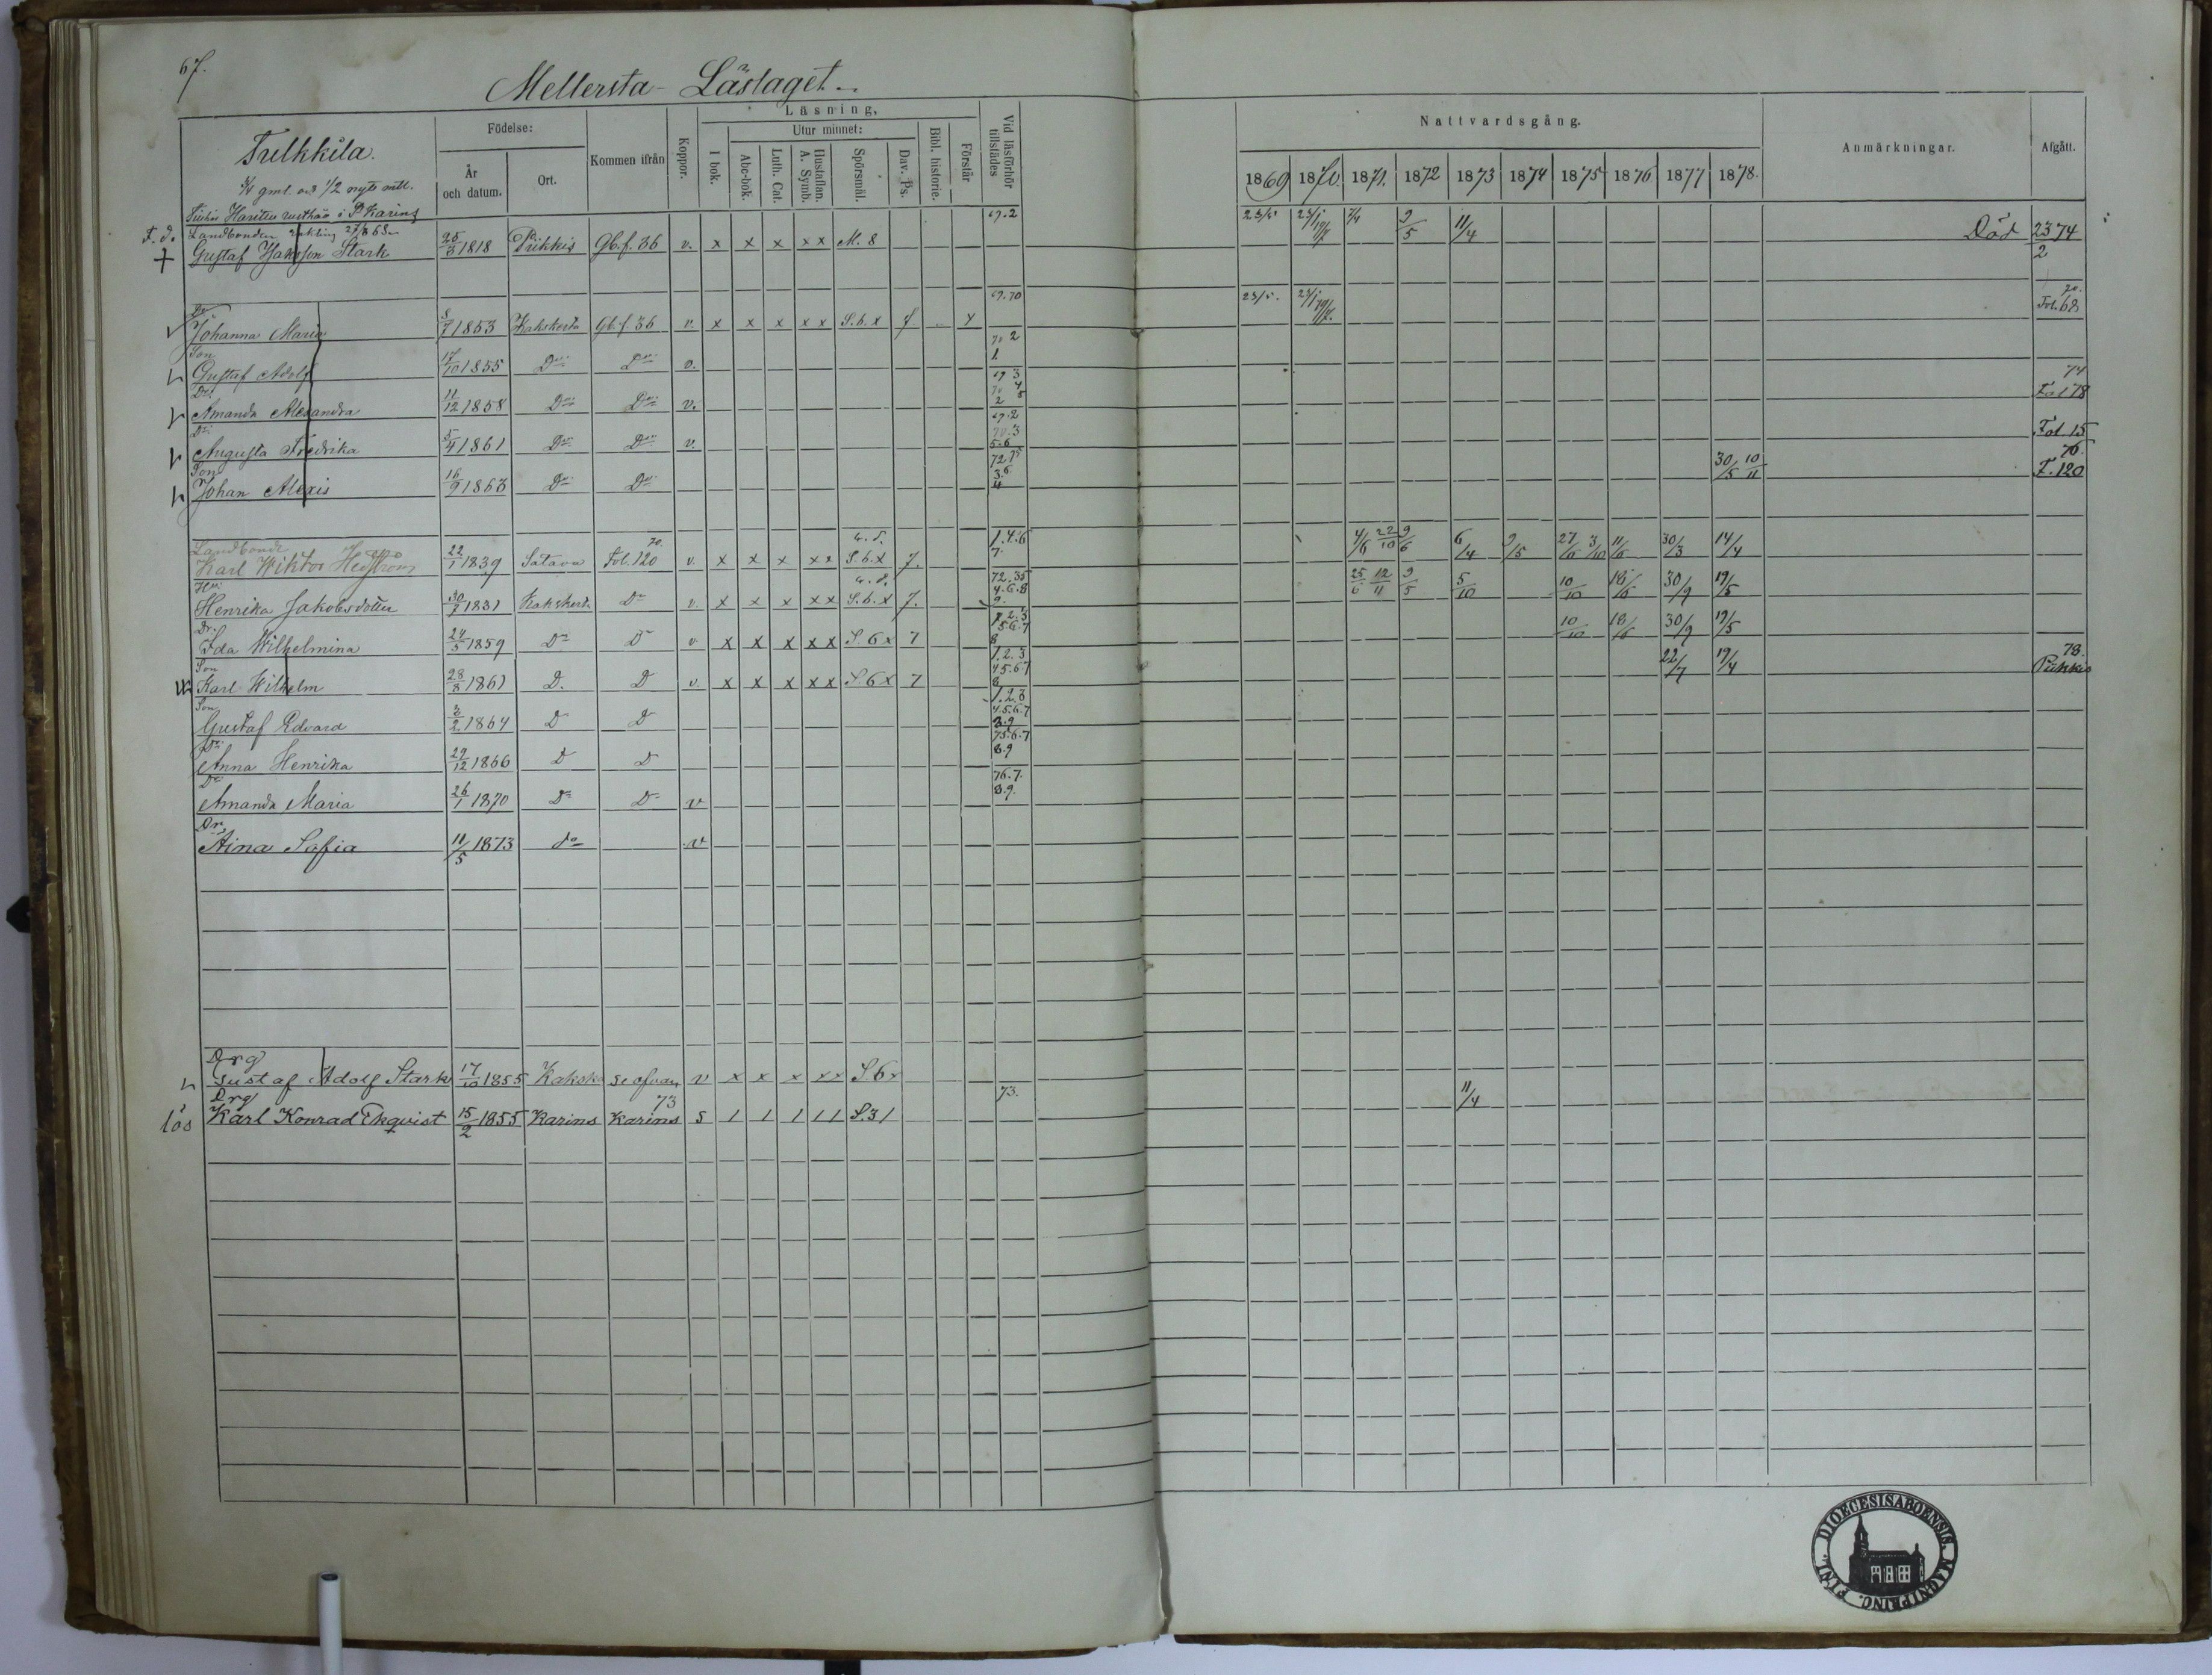 67.
Mellersta - Läslaget.
Tulkkila.
Födelse:
År och datum.
Ort.
Kommen ifrån
Koppor.
Läsning,
I bok.
Utur minnet:
Abc-bok.
Luth. Cat.
Hustaflan. A. Symb.
Spörsmål.
Dav. Ps.
Bibl. historie.
Förstår
Vid läsförhör tillstädes
Nattvardsgång.
1869 1870. 1871. 1872 1873 1874 1875 1876 1877 1878.
Anmärkningar.
Afgått.
F. d. Landbonden
† Gustaf Isaksson Stark 25/3 1818 Piikkis Gb. f. 36 v. x x x x x M. 8 69.2 23/5 9/5 11/4 Död 23/2 74
Dr Johanna Maria 8/7 1853 Kakskerta Gb. f. 36 v. x x x x x S. 6. x 7 x 69.70 23/5. 70. Fol. 68
Son Gustaf Adolf 17/10 1855 Do Do v. 70 2 1
Dr. Amanda Alexandra 11/12 1858 Do Do v. 69 3 70 4 2 5 74 Fol 78
Dr. Augusta Fredrika 5/4 1861 Do Do v. 69.2 70.3 5.6 Fol. 15
Son Johan Alexis 16/9 1863 Do Do 72 75 3.6 4 30/5 10/11 76. F. 120
Landbond. Karl Wiktor Hedström 22/1 1839 Satava 70. Fol. 120 v. x x x x x S. 6. x 7. 1.4.6 7. 4/6 22/10 9/6 6/4 9/5 27/6 3/10 11/6 30/3 14/4
Hu Henrika Jakobsdotter 30/7 1831 Kakskerta Do v. x x x x x S. 6. x 7. 72.35 4.6.8 9. 25/6 12/11 9/5 5/10 10/10 18/6 30/9 19/5
Dr. Ida Wilhelmina 24/5 1859 Do D v x x x x x S 6 x 7 10/10 18/6 30/9 19/5
Son Karl Wilhelm 28/8 1861 D. D v. x x x x x S 6 x 7 1.2.3 45.67 8 22/7 19/4 78. Piikkis
Son Gustaf Edvard 3/2 1864 D D 1.2.3 4.5.6.7 8.9
Dr Anna Henrika 29/12 1866 D D 75.6.7 8.9
Dr Amanda Maria 26/1 1870 Do Do v 76.7. 8.9.
Dr Aina Sofia 11/5 1873 do v
Drg Gustaf Adolf Stark 17/10 1855 Kaksk se ofvan v x x x x x S 6 x
lös Drg Karl Konrad Ekqvist 15/2 1855 Karins 73 Karins s 1 1 1 1 1 S. 3 1 73. 11/4
FINL. DIOECESIS ABOENSIS. MAGNI PRINC.